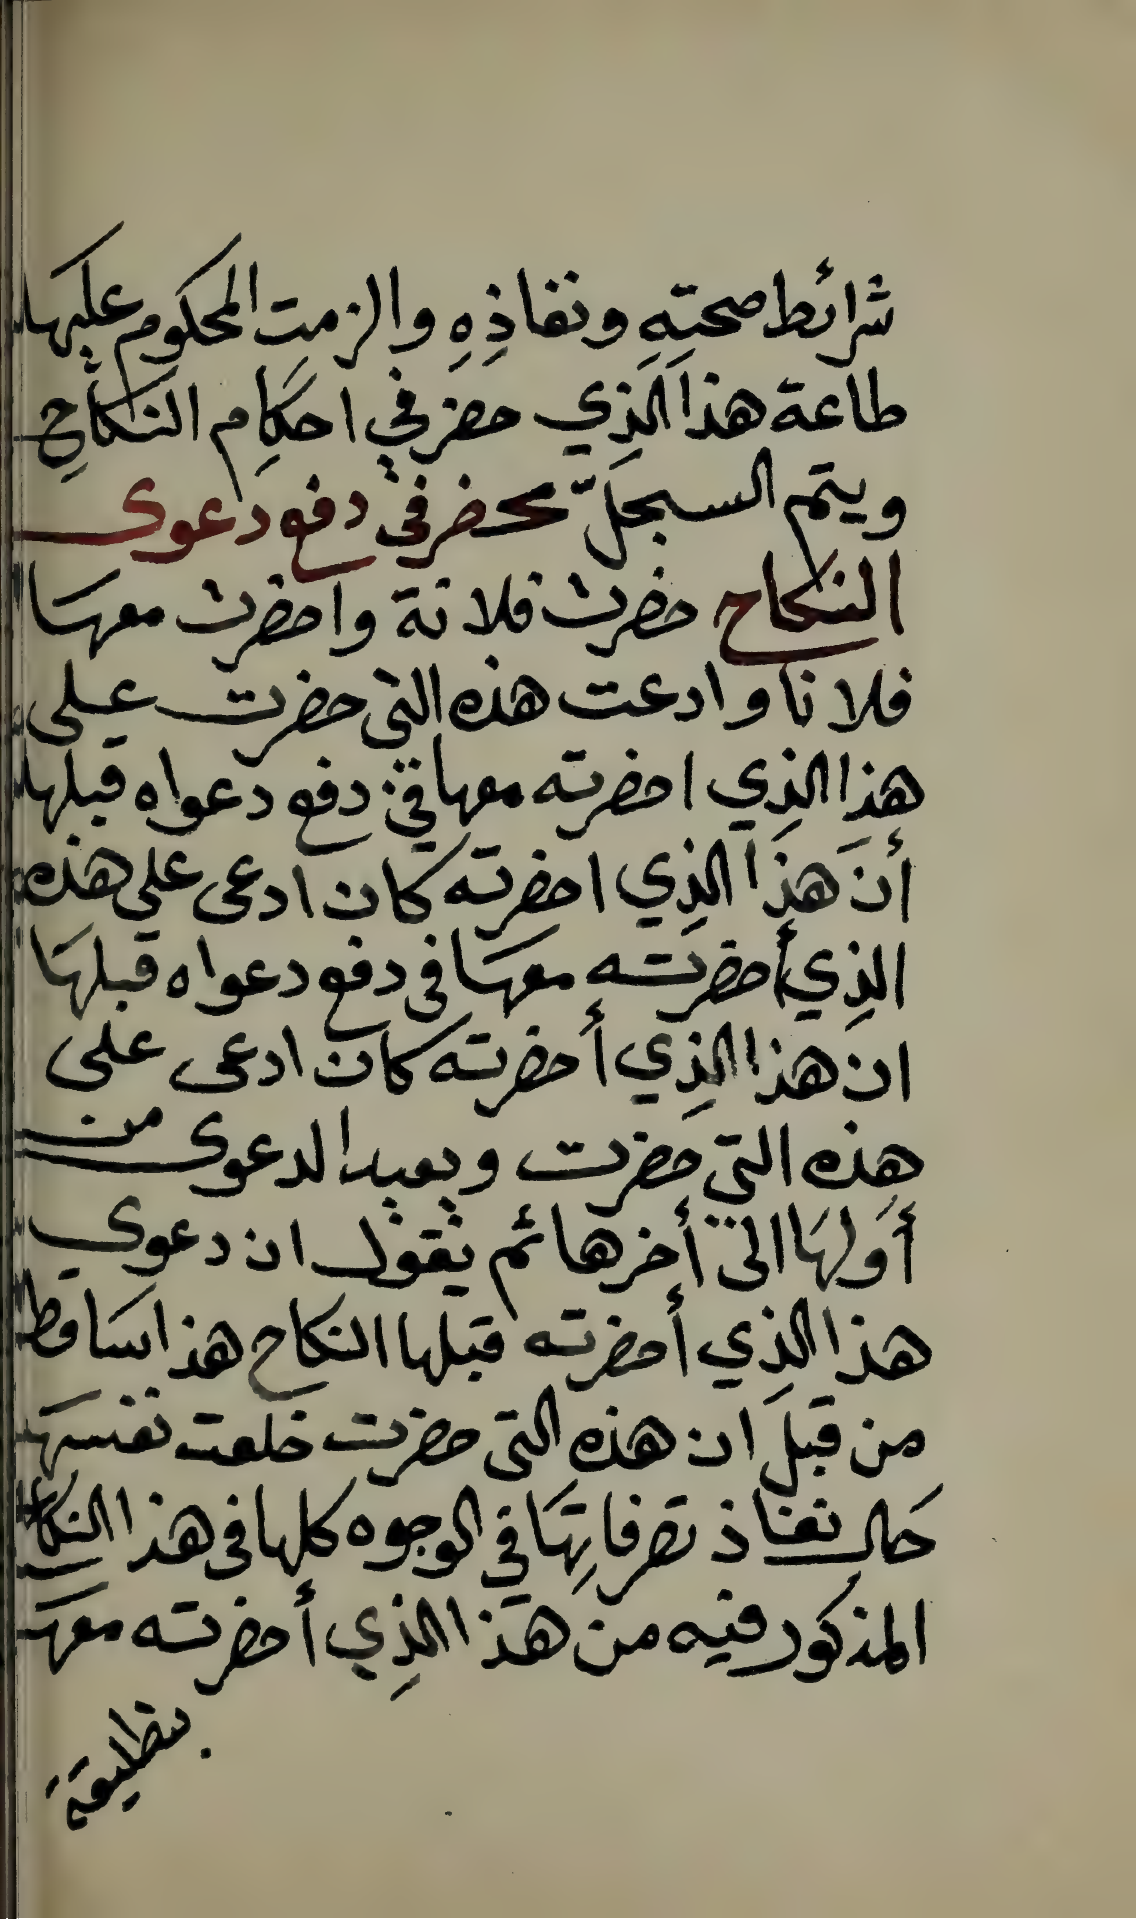 شرائط صحتهِ ونفاذِهِ والزمت المحكوم عليها
طاعة هذا الذِي حضر في احكام النكاحِ
ويتم السجلّ محضر في دفع دعوى
النكاح حضرت فلانة واحضرت معها
فلانا وادعت هذه التي حضرت على
هذا الذِي احضرته معها في دفع دعواه قبلها
أن هذا الذِي احضرته كان ادعى على هذه
الذِي أحضرته معها في دفع دعواه قبلها
ان هذا الذِي أحضرته كان ادعى على
هذه التي حضرت ويعيد الدعوى من
أولها الى أخرها ثم يقول ان دعوى
هذا الذِي أحضرته قبلها النكاح هذا ساقط
من قبل ان هذه التي حضرت خلعت نفسها
حال نفاذ تصرفاتِها في الوجوه كلها في هذا النكاح
المذكور فيه من هذا الذِي أحضرته معها
بتطليقة